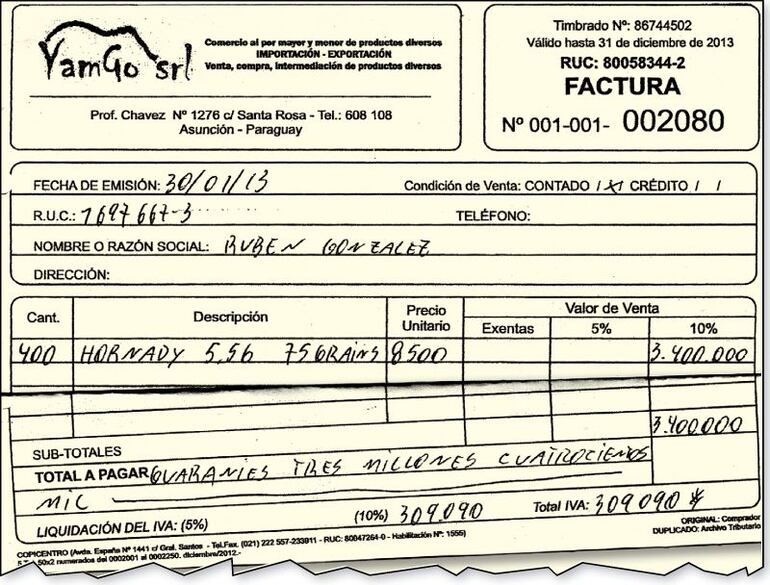 YamGo srl
Comercio al por mayor y menor de productos diversos
IMPORTACIÓN - EXPORTACIÓN
Venta, compra, intermediación de productos diversos
Prof. Chavez Nº 1276 c/ Santa Rosa - Tel.: 608 108
Asunción - Paraguay
Timbrado Nº: 86744502
Válido hasta 31 de diciembre de 2013
RUC: 80058344-2
FACTURA
Nº 001-001- 002080
FECHA DE EMISIÓN: 30/01/13 Condición de Venta: CONTADO / X CRÉDITO / /
R.U.C.: 1697667-3 TELÉFONO:
NOMBRE O RAZÓN SOCIAL: RUBEN GONZALEZ
DIRECCIÓN:
Cant. Descripción Precio Unitario Valor de Venta
Exentas 5% 10%
400 HORNADY 5,56 75GRAINS 8500 3.400.000
3.400.000
SUB-TOTALES
TOTAL A PAGAR GUARANIES TRES MILLONES CUATROCIENOS
MIL
LIQUIDACIÓN DEL IVA: (5%) (10%) 309.090 Total IVA: 309090 *
ORIGINAL: Comprador
DUPLICADO: Archivo Tributario
COPICENTRO (Avda. España Nº 1441 c/ Gral. Santos - Tel.Fax. (021) 222 557-233911 - RUC: 80047264-0 - Habilitación Nº: 1555)
50x2 numerados del 0002001 al 0002250. diciembre/2012.-